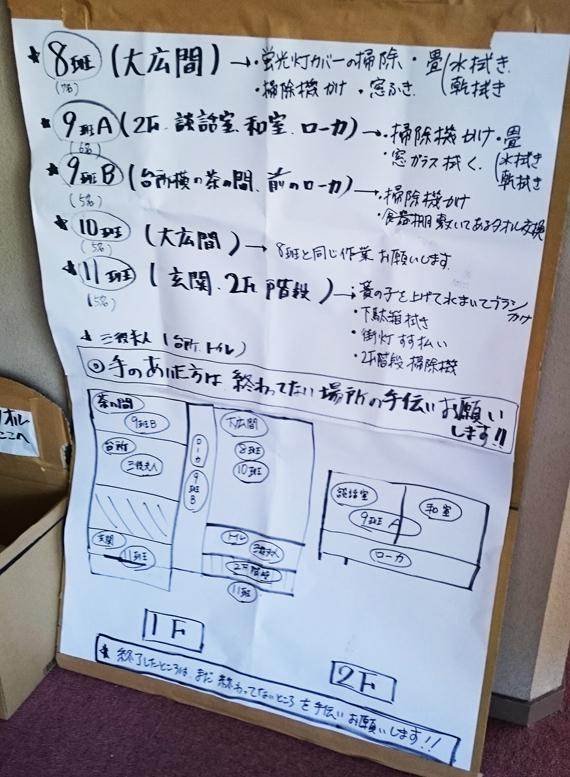 ★ 8班 (大広間) → ・蛍光灯カバーの掃除 ・畳(水拭き 乾拭き
(7名) ・掃除機かけ ・窓ふき
★ 9班A (2F. 談話室. 和室. ローカ) → ・掃除機かけ ・畳(水拭き 乾拭き
(6名) ・窓ガラス拭く
★ 9班B (台所横の茶の間. 前のローカ) → ・掃除機かけ
(5名) ・食器棚 敷いてあるタオル交換
★ 10班 (大広間) → 8班と同じ作業お願いします.
(5名)
★ 11班 (玄関. 2F 階段) → ・簀の子を上げて水まいてブラシかけ
(5名) ・下駄箱拭き
・街灯 すす払い
・2F階段 掃除機
★ 三役夫人 (台所. トイレ)
◎ 手のあいた方は 終わってない場所の手伝いお願いします!!
茶の間
9班B
台所
三役夫人
玄関
11班
ローカ
9班B
大広間
8班
10班
トイレ
三役夫人
2F階段
11班
1F
談話室
和室
9班A
ローカ
2F
★ 終了したところは、まだ終わってないところを手伝いお願いします!!
タオル
ここへ